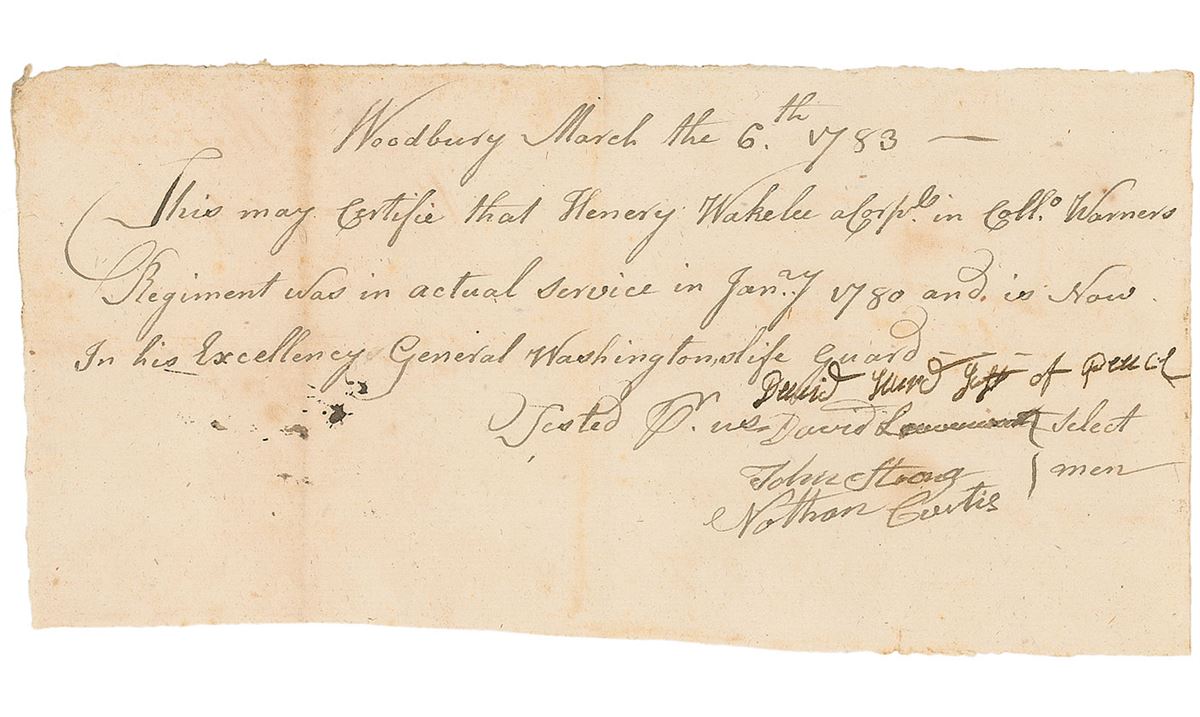 Woodbury March the 6.th 1783 —
This may Certifie that Henery Wakelee a Corpls in Collo. Warners
Regiment was in actual Service in Jan.ry 1780 and is Now
In his Excellency General Washingtons life Guard
David Hurd Jost of Peace
Tested Pr. us David { Select
John Strong } men
Nathan Curtis